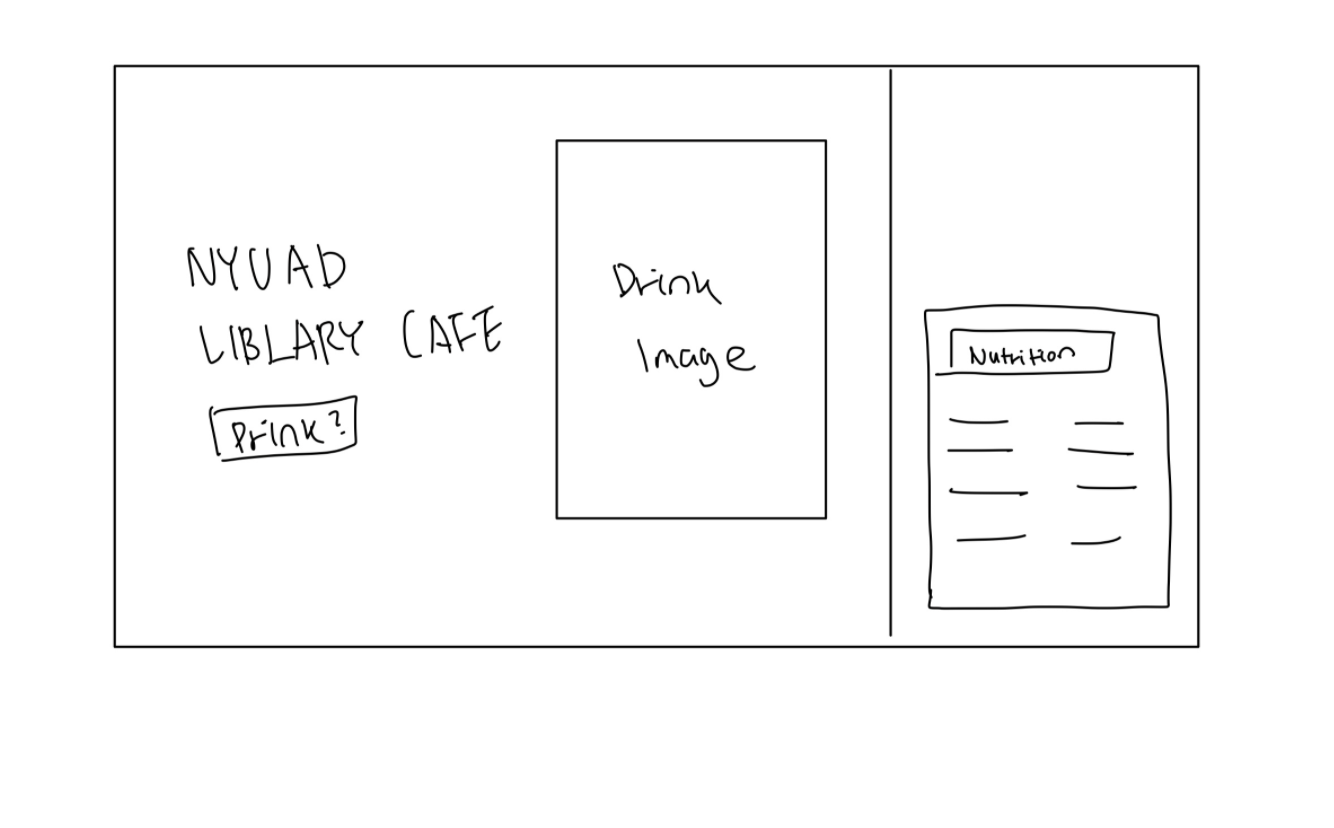 NYUAD
LIBLARY CAFE
Drink?
Drink
Image
Nutrition